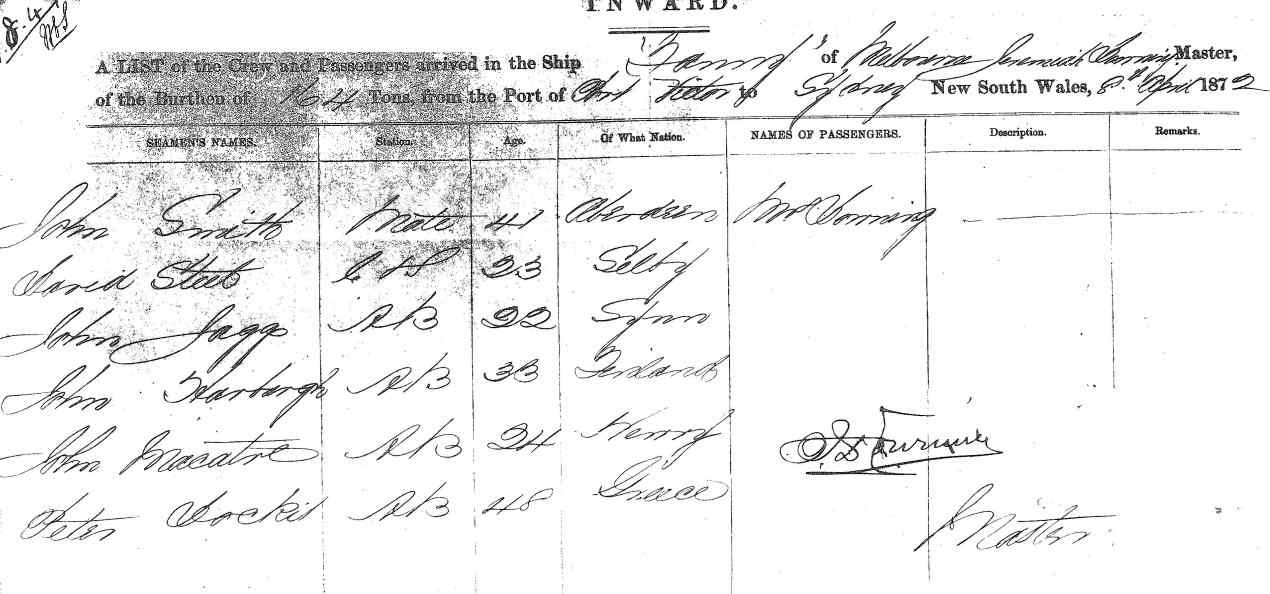 INWARD.
A LIST of the Crew and Passengers arrived in the Ship "Fanny" of Melbourne Jeremiah Master,
of the Burthen of 164 Tons, from the Port of Port Victor to Sydney New South Wales, 8th April 1872
SEAMEN'S NAMES. Station. Age. Of What Nation. NAMES OF PASSENGERS. Description. Remarks.
John Smith Mate 41 Aberdeen Mrs
David C & S 23 Selby
John Jagg AB 22 Lynn
John AB 33 Finland
John Macatre AB 24
Peter AB 48 Greece
Master